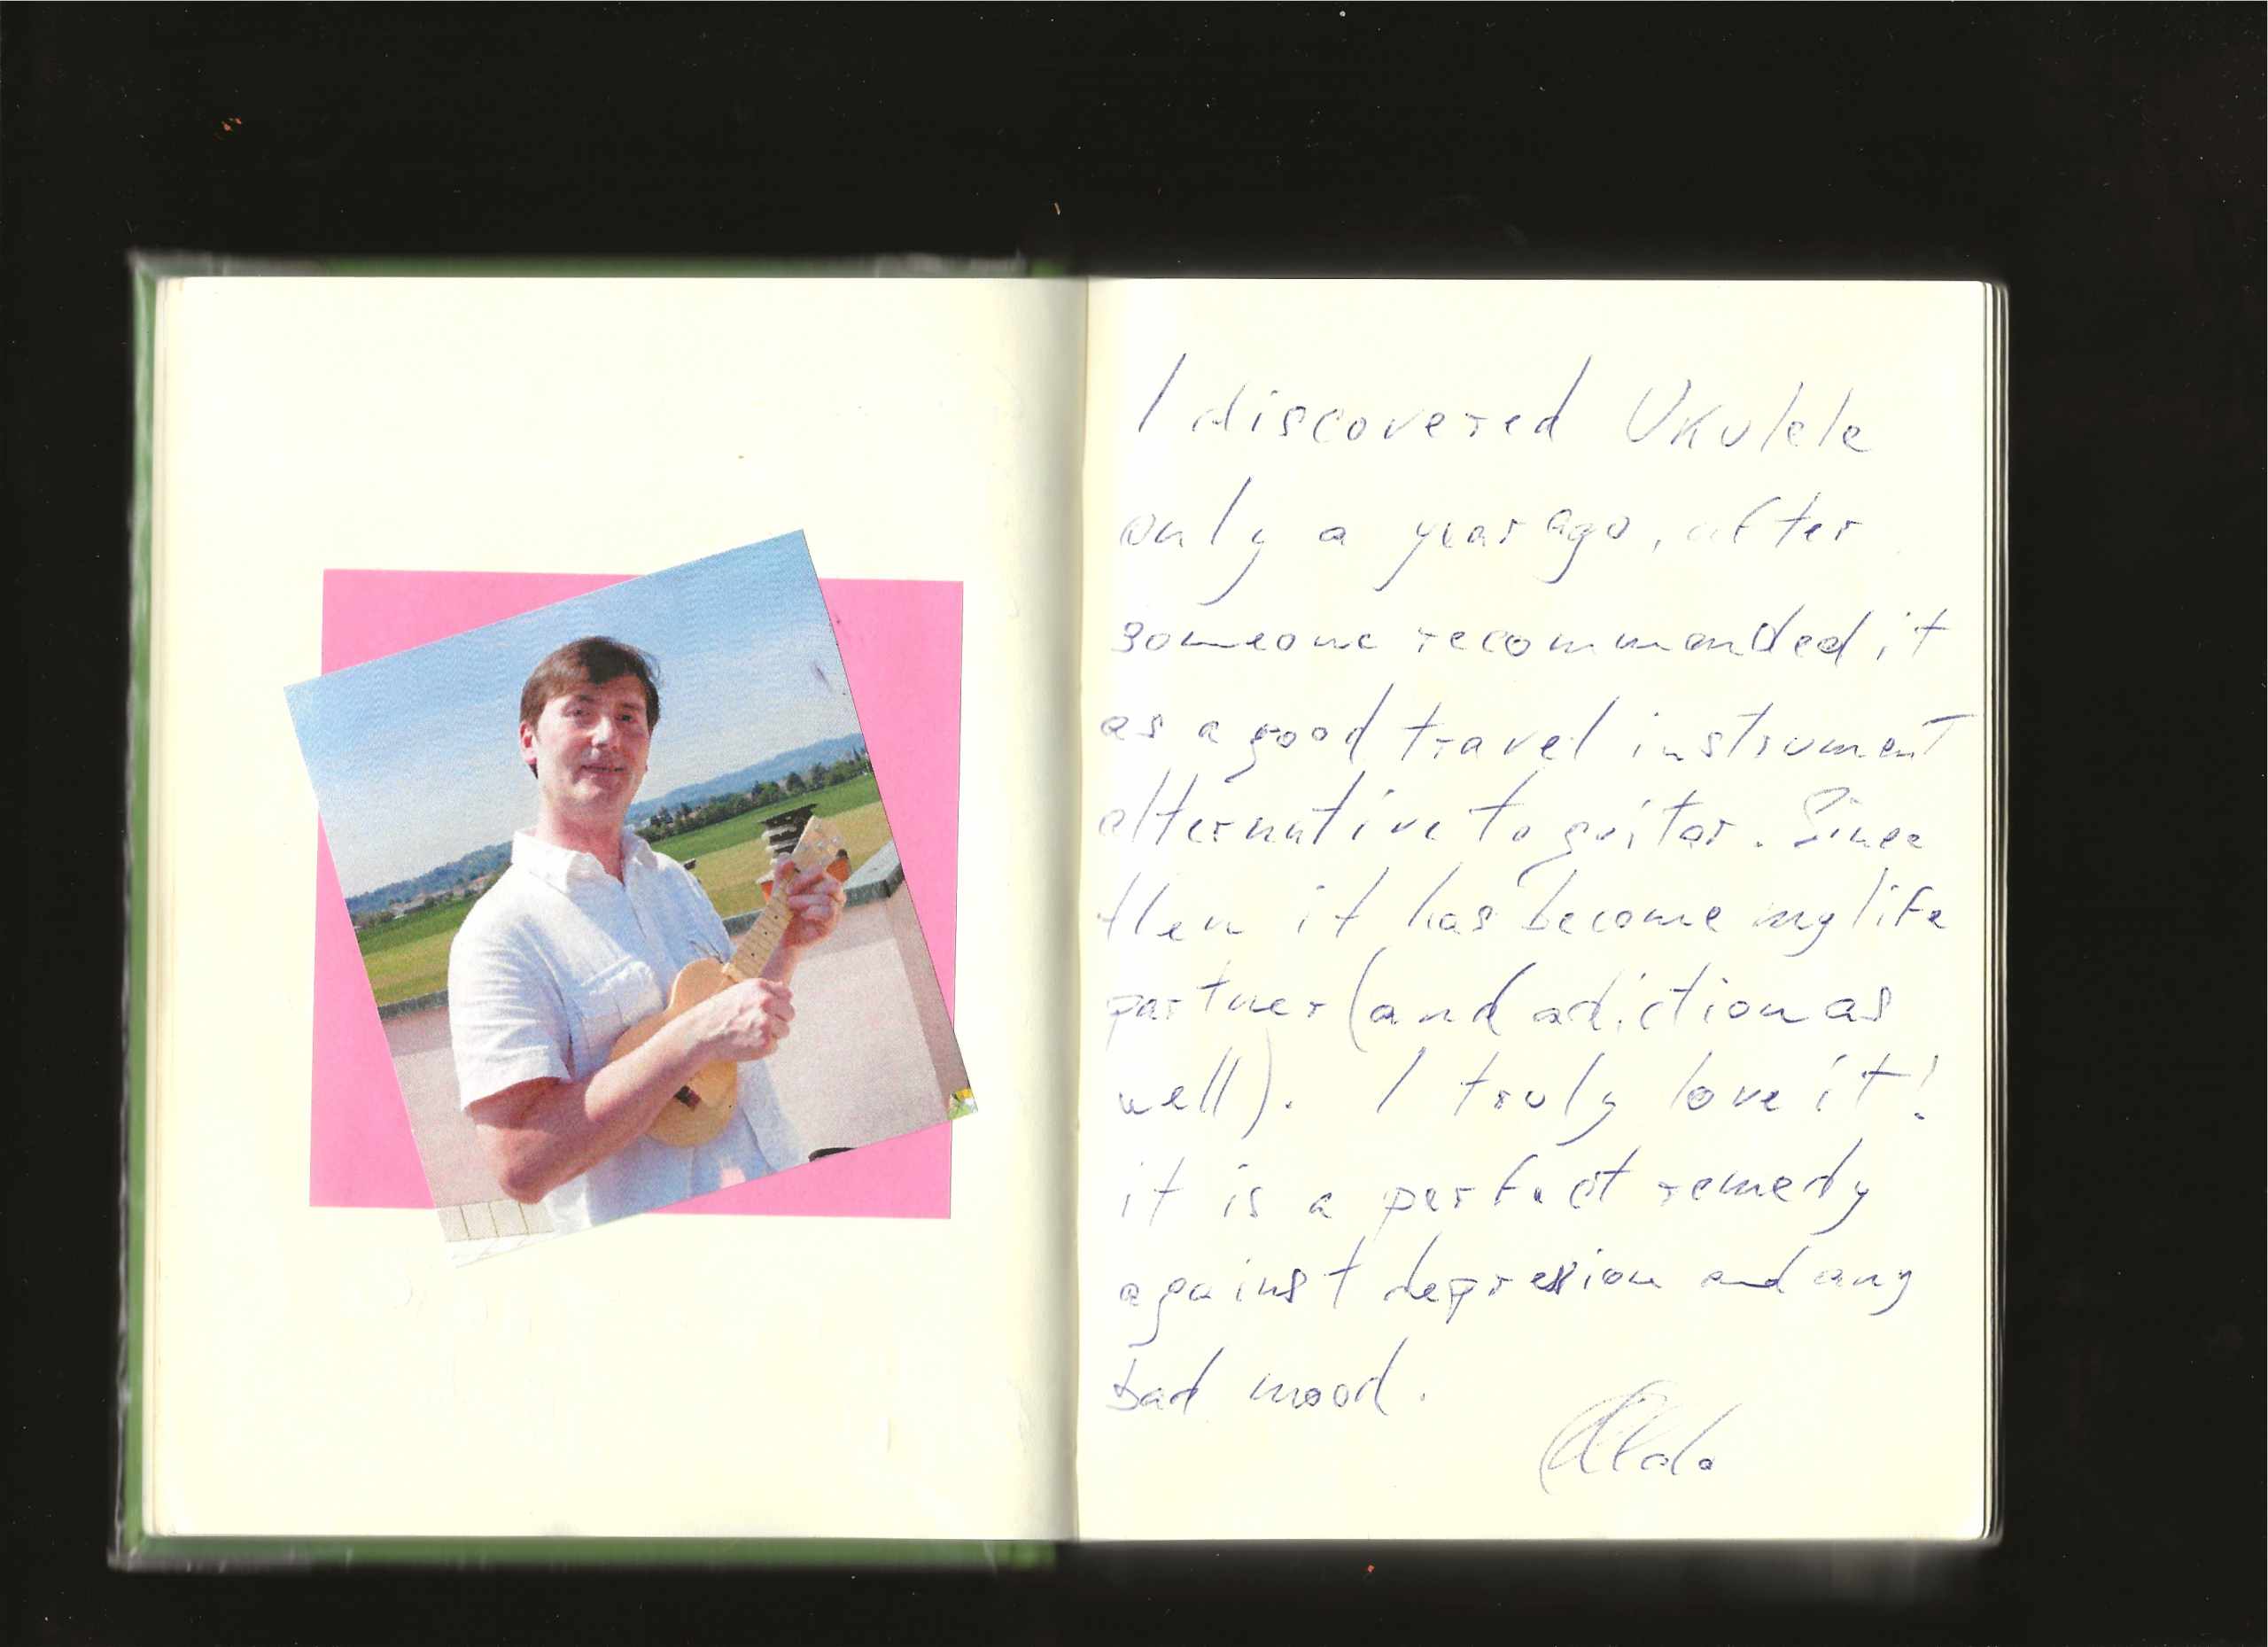 I discovered Ukulele
only a year ago, after
someone recommended it
as a good travel instrument
alternative to guitar. Since
then it has become my life
partner (and adiction as
well). I truly love it!
it is a perfect remedy
against depresion and any
bad mood.